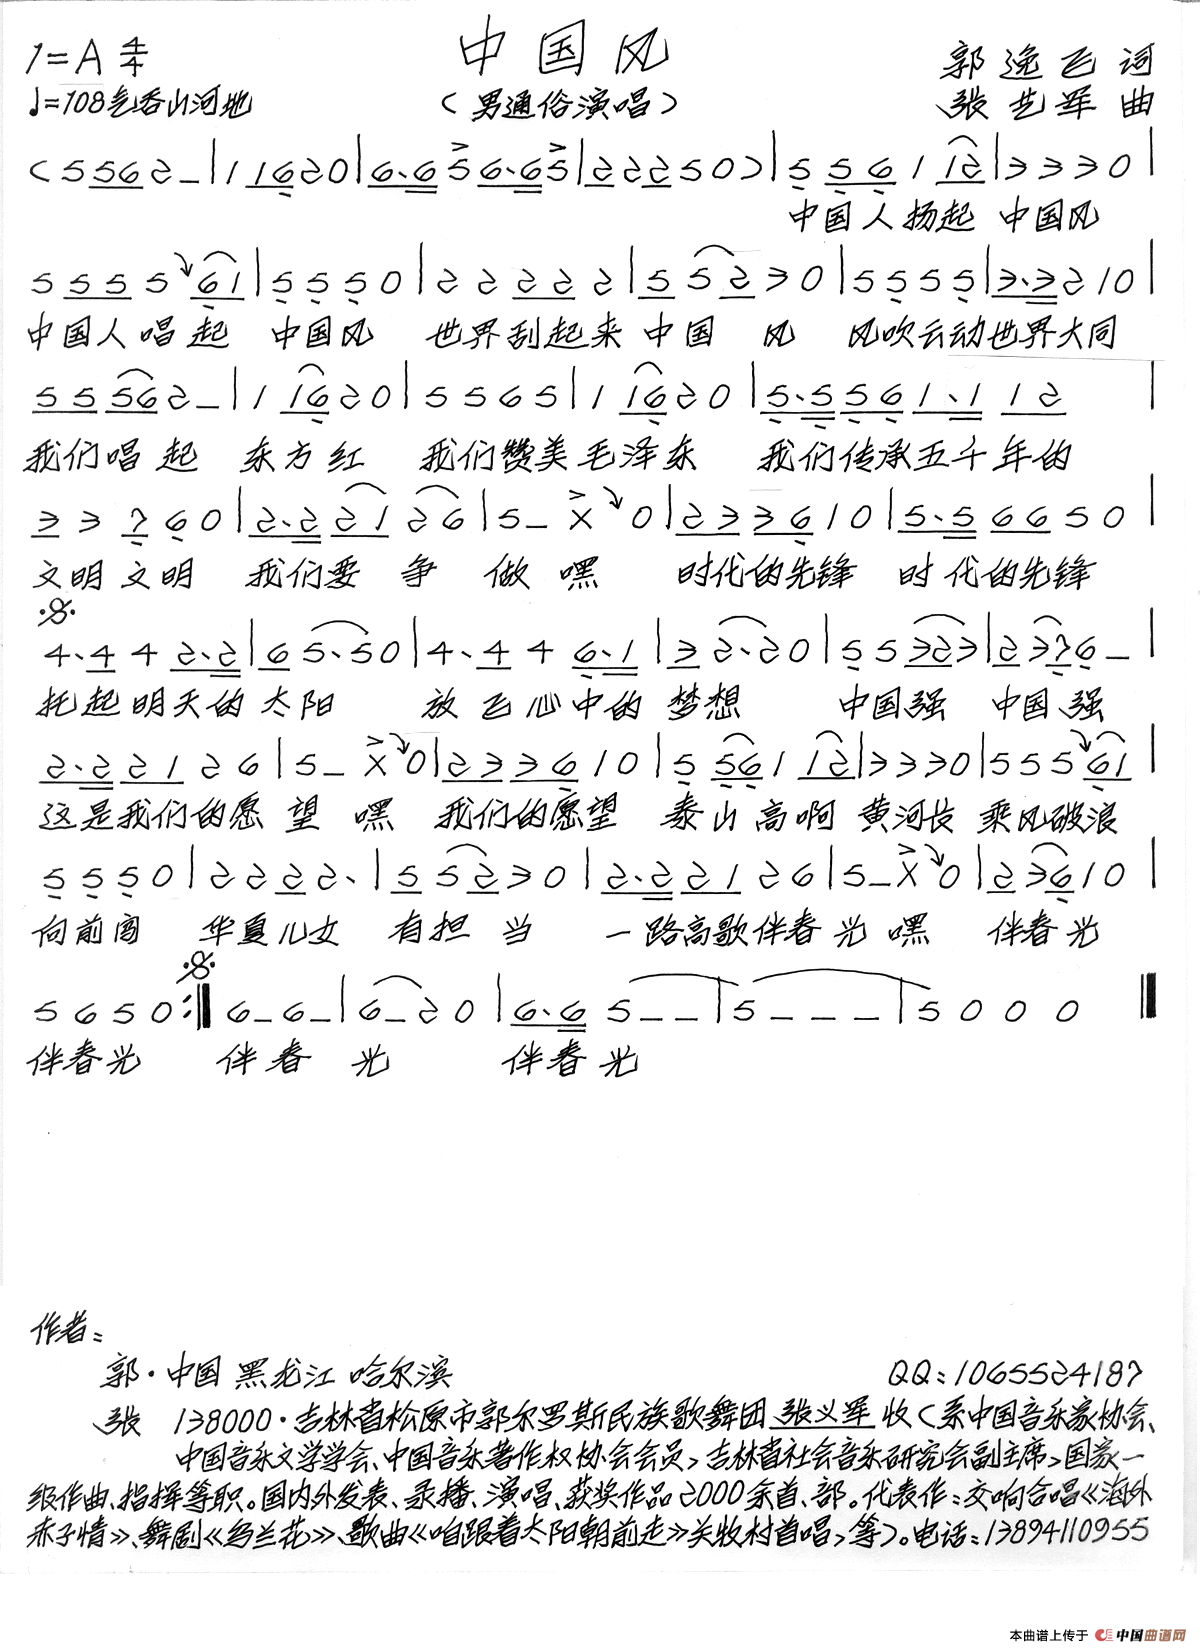 中国风
1=A 4/4
♩=108气吞山河地
（男通俗演唱）
郭逸飞 词
张艺军 曲
(5 5 6 2 – | 1 1 6 2 0 | 6·6 5 6·6 5 | 2 2 2 5 0) | 5 5 6 1 1 2 | 3 3 3 0 |
中国人扬起 中国风
5 5 5 5 6 1 | 5 5 5 0 | 2 2 2 2 2 | 5 5 2 3 0 | 5 5 5 5 | 3·3 2 1 0 |
中国人唱起 中国风 世界刮起来中国 风 风吹云动世界大同
5 5 5 6 2 – | 1 1 6 2 0 | 5 5 6 5 | 1 1 6 2 0 | 5·5 5 6 1·1 1 2 |
我们唱起 东方红 我们赞美毛泽东 我们传承五千年的
3 3 7 6 0 | 2·2 2 1 2 6 | 5 – X 0 | 2 3 3 6 1 0 | 5·5 6 6 5 0 |
文明文明 我们要 争 做 嘿 时代的先锋 时代的先锋
4·4 4 2·2 | 6 5·5 0 | 4·4 4 6·1 | 3 2·2 0 | 5 5 3 2 3 | 2 3 7 6 – |
托起明天的太阳 放飞心中的 梦想 中国强 中国强
2·2 2 1 2 6 | 5 – X 0 | 2 3 3 6 1 0 | 5 5 6 1 1 2 | 3 3 3 0 | 5 5 5 6 1 |
这是我们的愿 望 嘿 我们的愿望 泰山高啊 黄河长 乘风破浪
5 5 5 0 | 2 2 2 2· | 5 5 2 3 0 | 2·2 2 1 2 6 | 5 – X 0 | 2 3 6 1 0 |
向前闯 华夏儿女 有担 当 一路高歌伴春光 嘿 伴春光
5 6 5 0 :‖ 6 – 6 – | 6 – 2 0 | 6·6 5 – – | 5 – – – | 5 0 0 0 ‖
伴春光 伴春 光 伴春光
作者：
郭·中国 黑龙江 哈尔滨 QQ：1065524187
张 138000·吉林省松原市郭尔罗斯民族歌舞团 张义军 收（系中国音乐家协会、
中国音乐文学学会、中国音乐著作权协会会员，吉林省社会音乐研究会副主席，国家一
级作曲、指挥等职。国内外发表、录播、演唱、获奖作品2000余首、部。代表作：交响合唱《海外
赤子情》、舞剧《乌兰花》、歌曲《咱跟着太阳朝前走》关牧村首唱，等）。电话：13894110955
本曲谱上传于 中国曲谱网